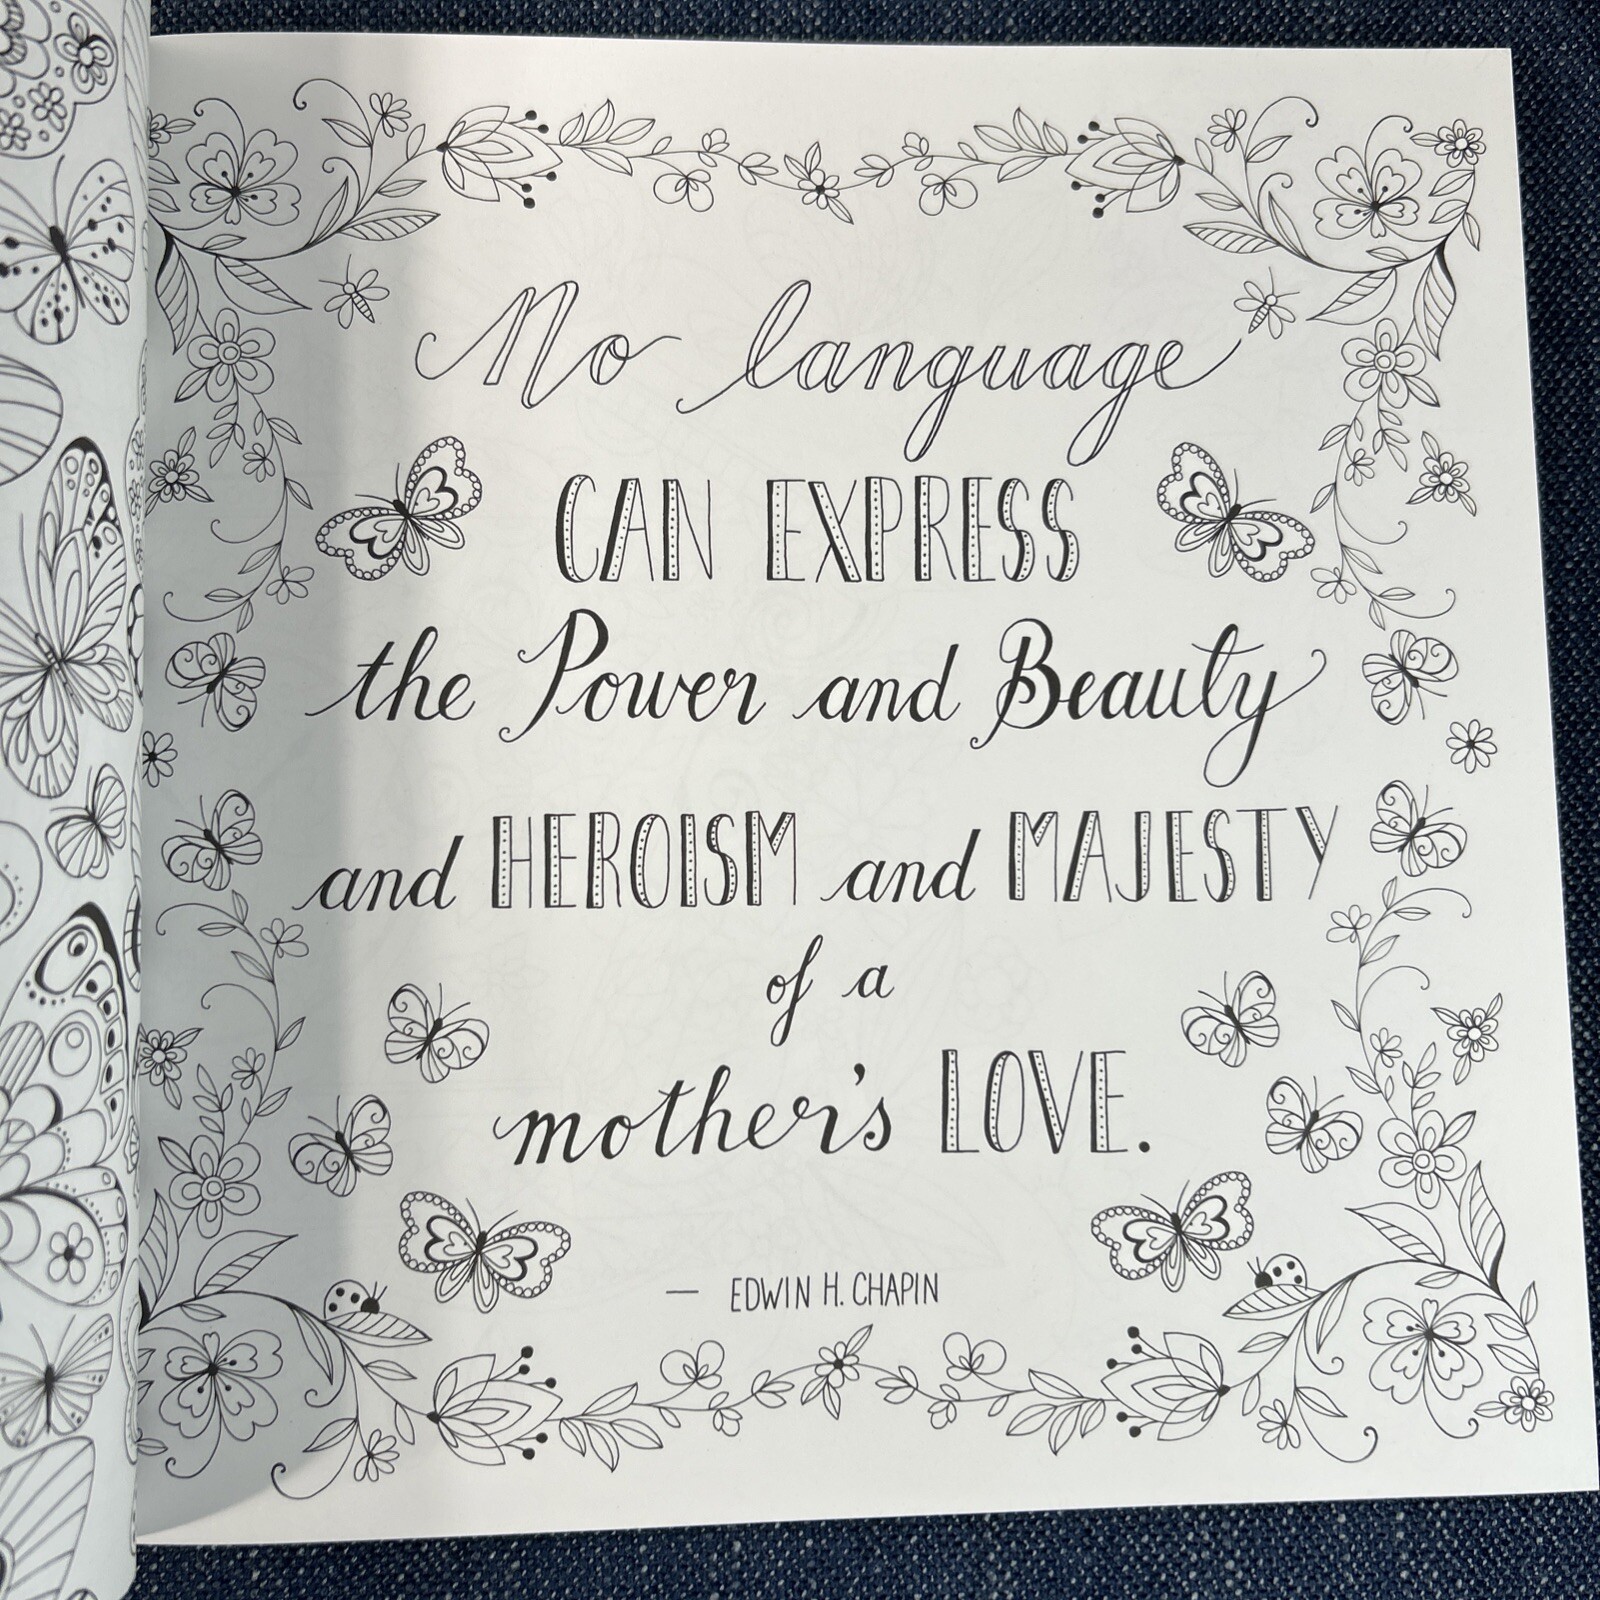 No language
CAN EXPRESS
the Power and Beauty
and HEROISM and MAJESTY
of a
mother's LOVE.
— EDWIN H. CHAPIN